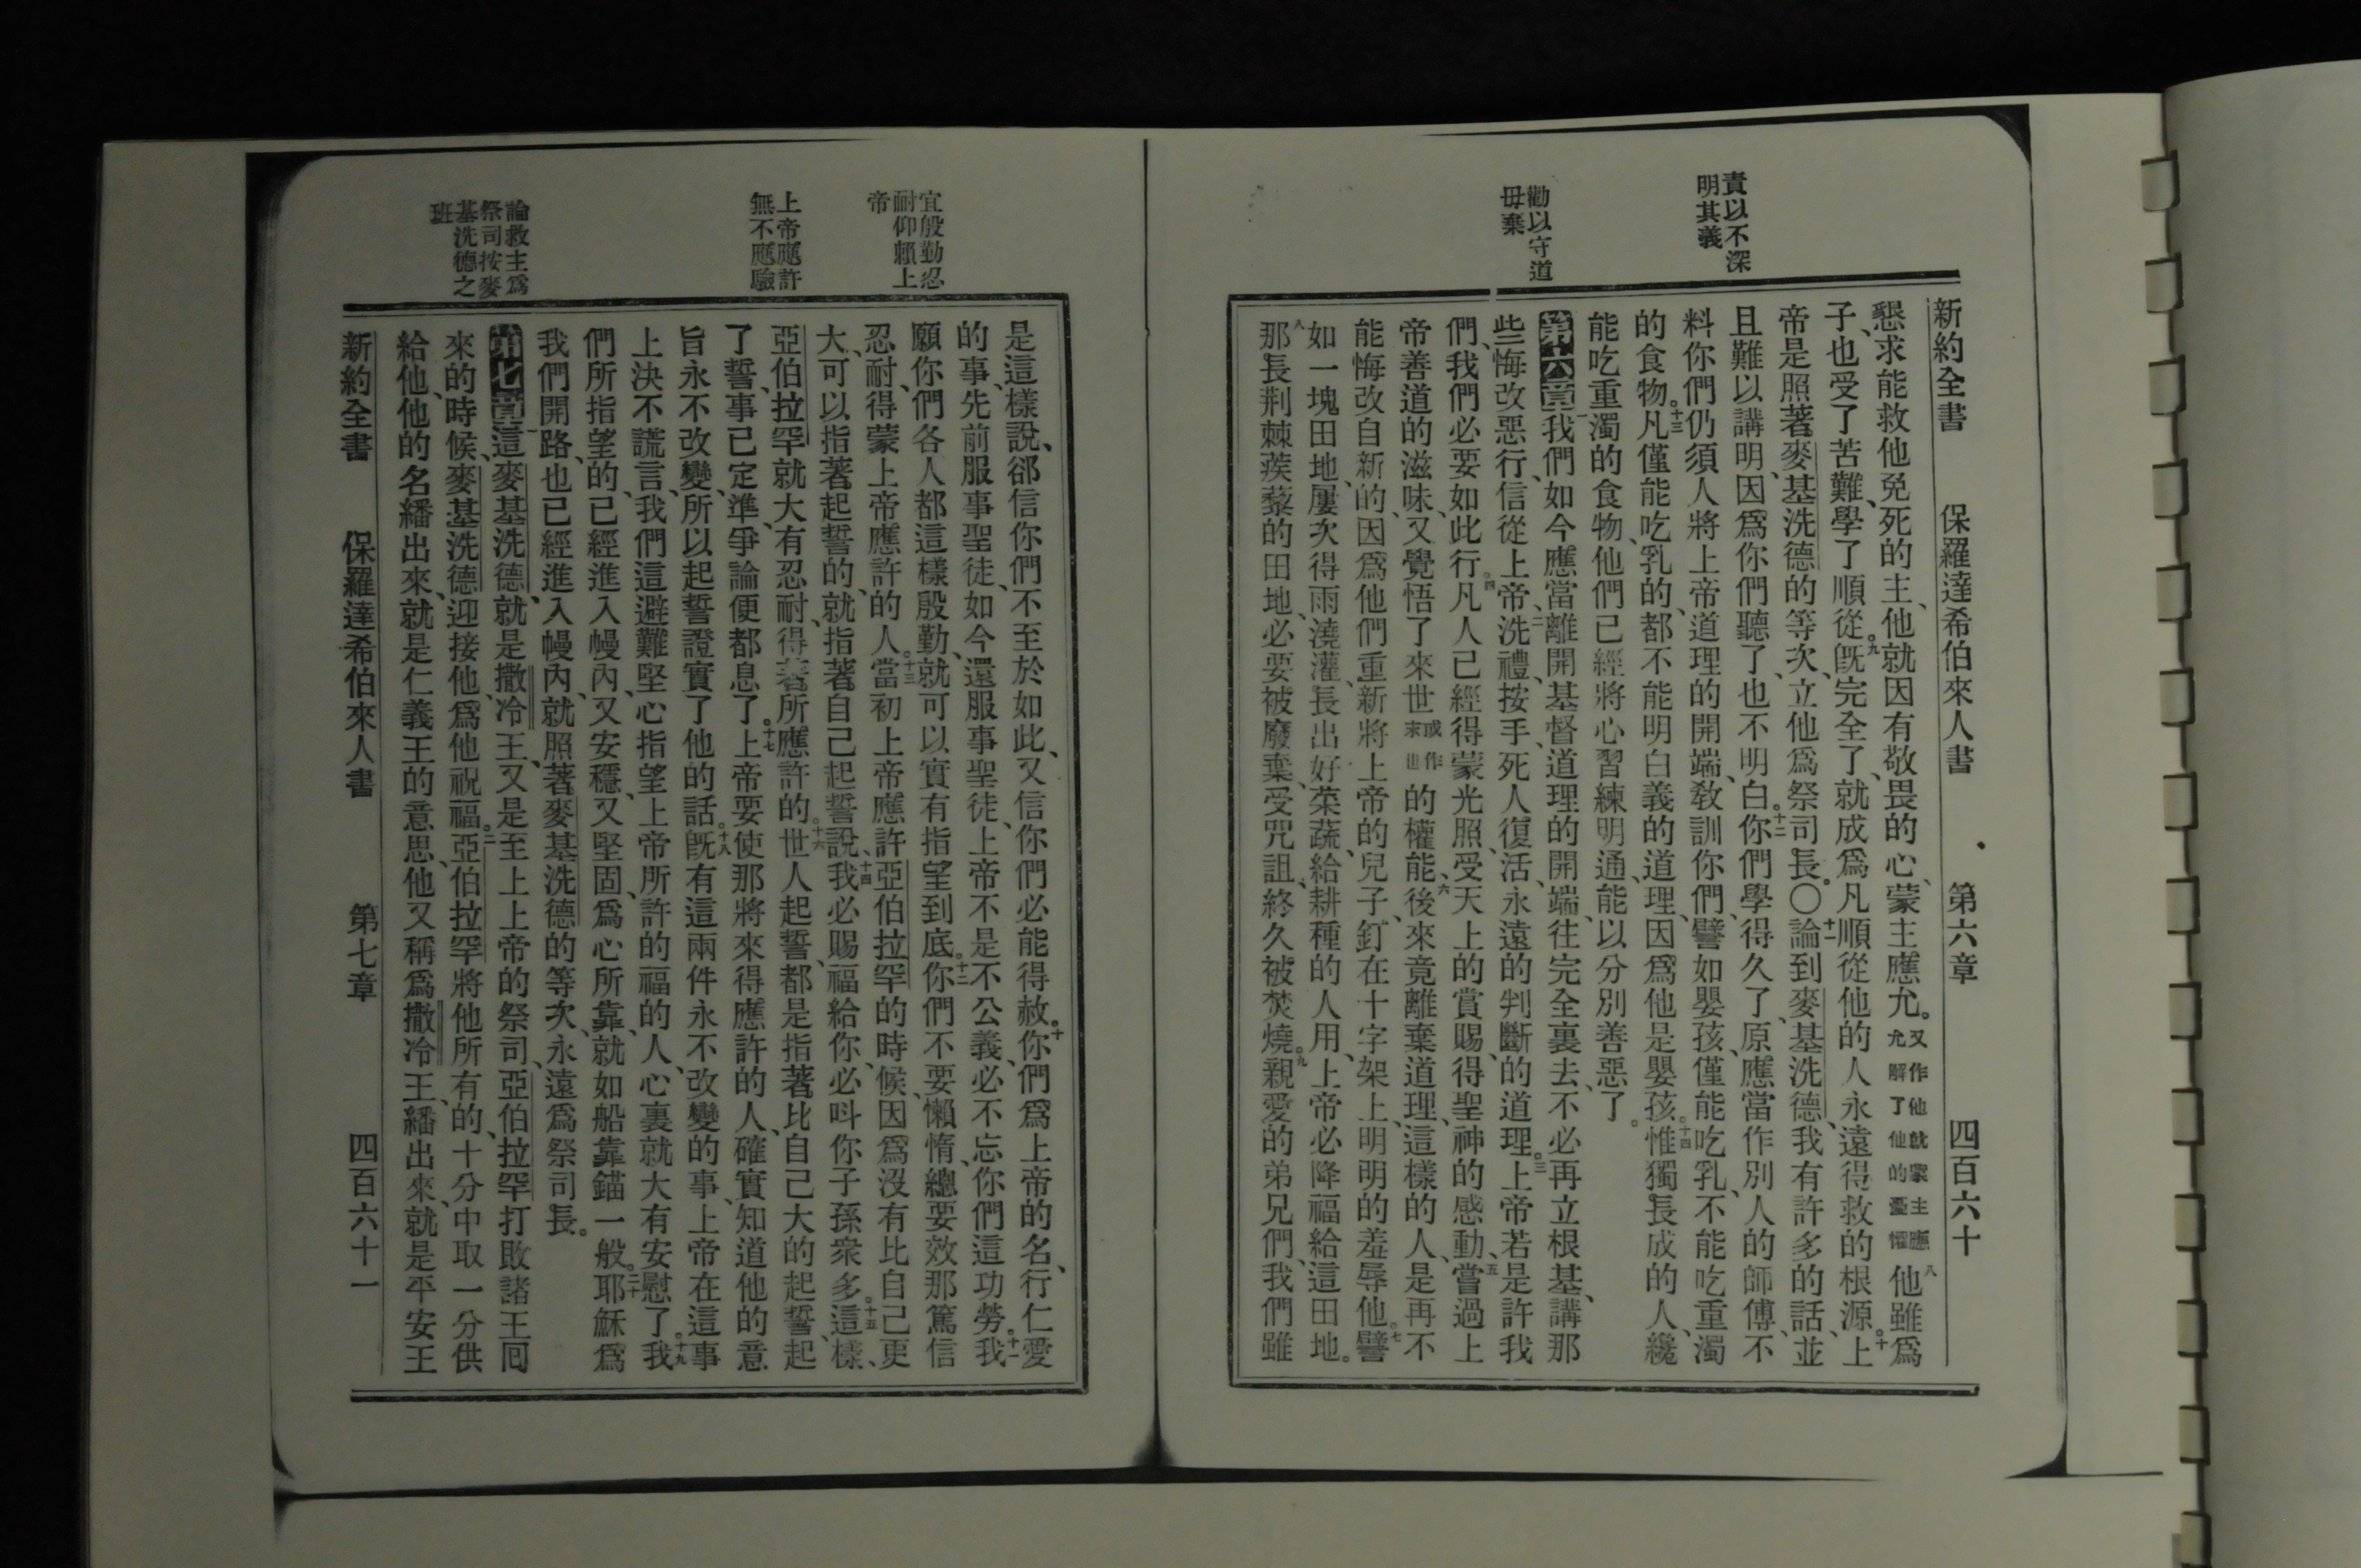 責以不深
明其義
勸以守道
毋棄
新約全書　保羅達希伯來人書　第六章　四百六十
懇求能救他免死的主、他就因有敬畏的心、蒙主應允。又作他就蒙主應允解了他的憂懼八他雖爲
子、也受了苦難、學了順從。九旣完全了、就成爲凡順從他的人永遠得救的根源。十上
帝是照著麥基洗德的等次、立他爲祭司長。〇十一論到麥基洗德、我有許多的話、並
且難以講明、因爲你們聽了、也不明白。十二你們學得久了、原應當作別人的師傅、不
料你們仍須人將上帝道理的開端、敎訓你們、譬如嬰孩、僅能吃乳、不能吃重濁
的食物。十三凡僅能吃乳的、都不能明白義的道理、因爲他是嬰孩。十四惟獨長成的人、纔
能吃重濁的食物、他們已經將心習練明通、能以分別善惡了。
第六章一我們如今應當離開基督道理的開端、往完全裏去、不必再立根基、講那
些悔改惡行、信從上帝、二洗禮、按手、死人復活、永遠的判斷的道理。三上帝若是許我
們、我們必要如此行。四凡人已經得蒙光照、受天上的賞賜、得聖神的感動、五嘗過上
帝善道的滋味、又覺悟了來世或作末世的權能、六後來竟離棄道理、這樣的人、是再不
能悔改自新的、因爲他們重新將上帝的兒子、釘在十字架上、明明的羞辱他。七譬
如一塊田地、屢次得雨澆灌、長出好菜蔬、給耕種的人用、上帝必降福給這田地。
八那長荆棘蒺藜的田地、必要被廢棄、受咒詛、終久被焚燒。九親愛的弟兄們、我們雖
宜殷勤忍
耐仰賴上
帝
上帝應許
無不應驗
論救主爲
祭司按麥
基洗德之
班
是這樣說、郤信你們、不至於如此、又信你們必能得赦。十你們爲上帝的名、行仁愛
的事、先前服事聖徒、如今還服事聖徒、上帝不是不公義、必不忘你們這功勞。十一我
願你們各人都這樣殷勤、就可以實有指望到底。十二你們不要懶惰、總要效那篤信
忍耐、得蒙上帝應許的人。十三當初上帝應許亞伯拉罕的時候、因爲沒有比自己更
大、可以指著起誓的、就指著自己起誓說、十四我必賜福給你、必呌你子孫衆多。十五這樣、
亞伯拉罕就大有忍耐、得著所應許的。十六世人起誓、都是指著比自己大的起誓、起
了誓、事已定準、爭論便都息了。十七上帝要使那將來得應許的人、確實知道他的意
旨永不改變、所以起誓證實了他的話。十八旣有這兩件永不改變的事、上帝在這事
上決不謊言、我們這避難堅心指望上帝所許的福的人、心裏就大有安慰了。十九我
們所指望的、已經進入幔內、又安穩、又堅固、爲心所靠、就如船靠錨一般。二十耶穌爲
我們開路、也已經進入幔內、就照著麥基洗德的等次、永遠爲祭司長。
第七章一這麥基洗德、就是撒冷王、又是至上上帝的祭司、亞伯拉罕打敗諸王囘
來的時候、麥基洗德迎接他、爲他祝福。二亞伯拉罕將他所有的、十分中取一分供
給他、他的名繙出來、就是仁義王的意思、他又稱爲撒冷王、繙出來、就是平安王
新約全書　保羅達希伯來人書　第七章　四百六十一